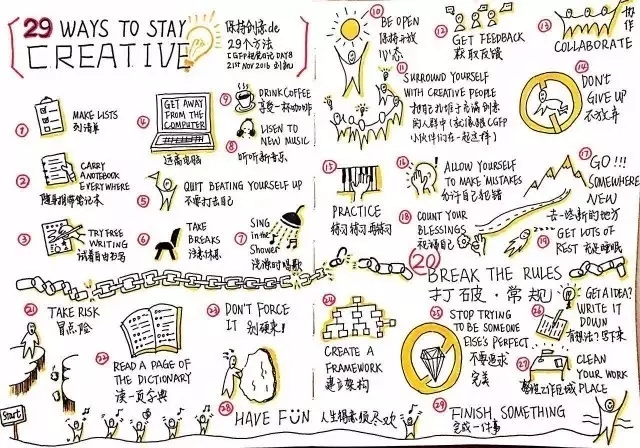 29 WAYS TO STAY
CREATIVE
保持创意de
29个方法
21ST NOV 2016
①
MAKE LISTS
列清单
②
CARRY
A NOTEBOOK
EVERYWHERE
随身携带笔记本
③
TRY FREE
WRITING
试着自由书写
④
GET AWAY
FROM THE
COMPUTER
远离电脑
⑤
QUIT BEATING YOURSELF UP
不要打击自己
⑥
TAKE
BREAKS
注意休息
⑦
SING
IN the
Shower
洗澡时唱歌
⑨
DRINK COFFEE
享受一杯咖啡
⑧
LISEN TO
NEW MUSIC
听听新音乐
⑩
BE OPEN
保持开放
心态
⑪
SURROUND YOURSELF
WITH CREATIVE PEOPLE
⑫
GET FEEDBACK
获取反馈
⑬
协作
COLLABORATE
⑭
DON'T
GIVE UP
不放弃
⑮
PRACTICE
练习 练习 再练习
⑯
ALLOW YOURSELF
TO MAKE MISTAKES
允许自己犯错
⑰
GO!!!
SOMEWHERE
NEW
去一些新的地方
⑱
COUNT YOUR
BLESSINGS
祝福自己
⑲
GET LOTS OF
REST 充足睡眠
⑳
BREAK THE RULES
打破·常规
㉑
TAKE RISK
冒点险
㉒
READ A PAGE OF
THE DICTIONARY
读一页字典
㉓
DON'T FORCE
IT 别硬来!
㉔
CREATE A
FRAMEWORK
建立架构
㉕
STOP TRYING
TO BE SOMEONE
ELSE'S PERFECT
不要追求
完美
㉖
GET AIDEA?
WRITE IT
DOWN
有想法?写下来
㉗
CLEAN
YOUR WORK
PLACE
整理工作区域
Start
㉘
HAVE FUN 人生得意须尽欢
㉙
FINISH, SOMETHING
完成一件事